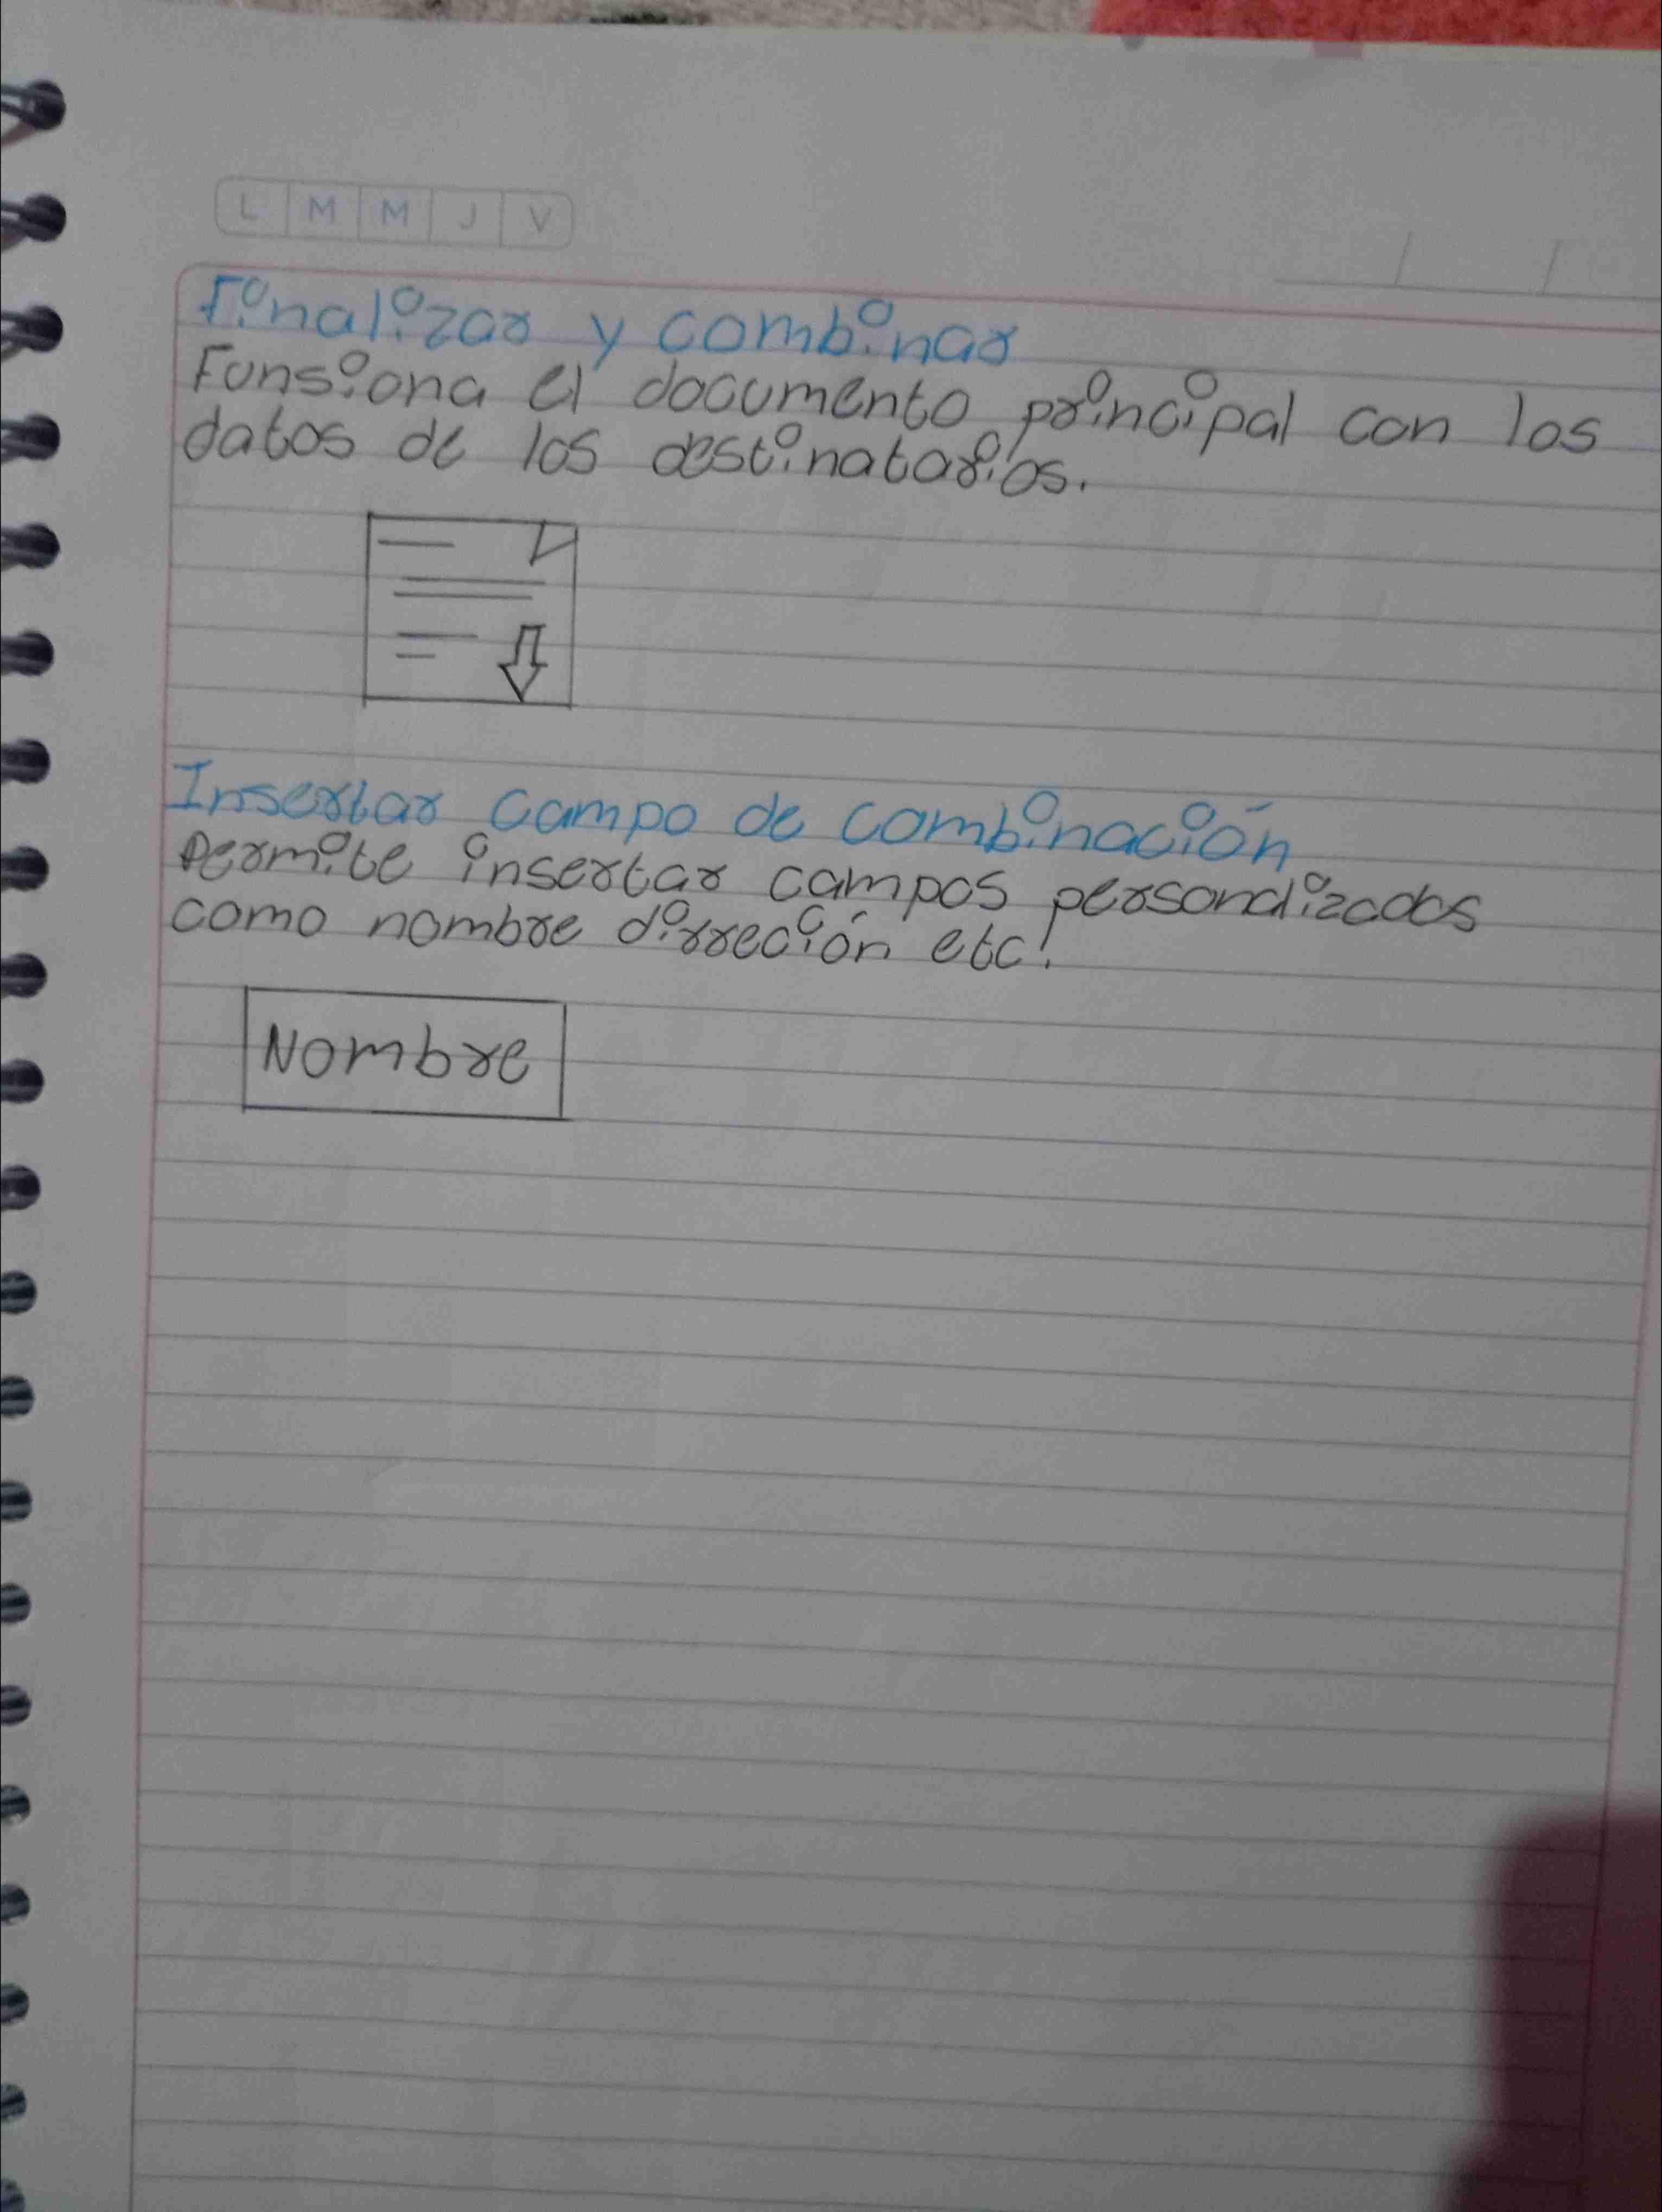 L M M J V
Finalizar y combinar
Funsiona el documento principal con los
datos de los destinatarios.
Insertar campo de combinación
Permite insertar campos personalizados
como nombre dirreción etc!
Nombre